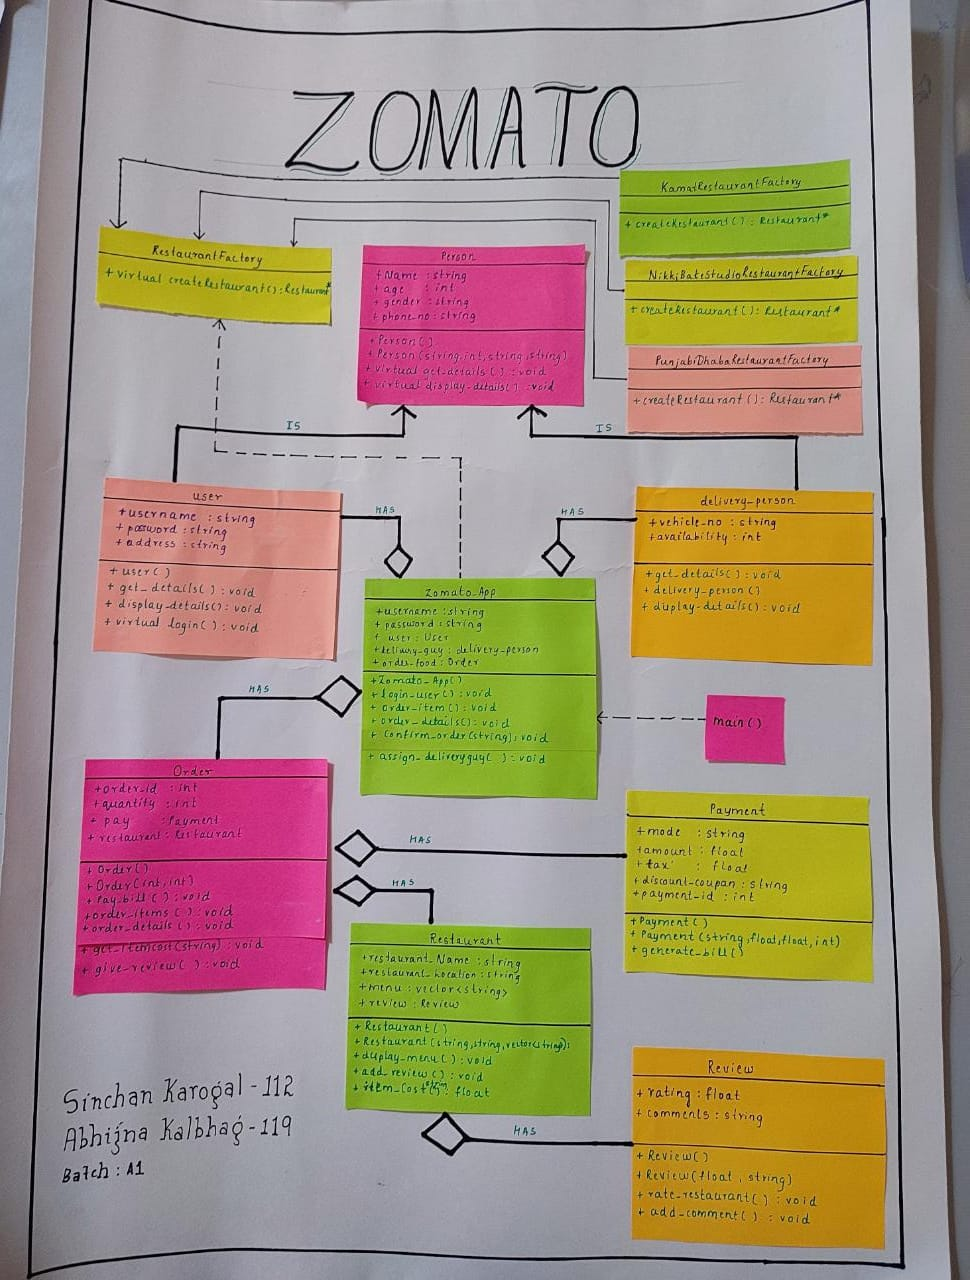 ZOMATO
KamatRestaurantFactory
+ createRestaurant( ) : Restaurant*
RestaurantFactory
+ virtual createRestaurant( ): Restaurant*
Person
+ Name : string
+ age : int
+ gender : string
+ phone_no : string
+ Person( )
+ Person(string,int,string,string)
+ virtual get_details( ) : void
+ virtual display_details( ) : void
NikkiBateStudioRestaurantFactory
+ createRestaurant( ): Restaurant*
PunjabiDhabaRestaurantFactory
+ createRestaurant( ): Restaurant*
IS
IS
user
+ username : string
+ password : string
+ address : string
+ user( )
+ get_details( ) : void
+ display_details( ): void
+ virtual login( ) : void
HAS
HAS
delivery_person
+ vehicle_no : string
+ availability : int
+ get_details( ) : void
+ delivery_person( )
+ display_details( ) : void
Zomato_App
+ username : string
+ password : string
+ user : User
+ delivery_guy : delivery_person
+ order_food : Order
+ Zomato_App( )
+ login_user( ) : void
+ order_item( ) : void
+ order_details( ) : void
+ confirm_order(string) : void
+ assign_deliveryguy( ) : void
HAS
main( )
Order
+ order_id : int
+ quantity : int
+ pay : Payment
+ restaurant : Restaurant
+ Order( )
+ Order(int,int)
+ Pay_bill( ) : void
+ order_items( ) : void
+ order_details( ) : void
+ get_itemcost(string) : void
+ give_review( ) : void
HAS
HAS
Payment
+ mode : string
+ amount : float
+ tax : float
+ discount_coupan : string
+ payment_id : int
+ Payment( )
+ Payment(string,float,float,int)
+ generate_bill( )
Restaurant
+ restaurant_Name : string
+ restaurant_Location : string
+ menu : vector<string>
+ review : Review
+ Restaurant( )
+ Restaurant(string,string,vector<string>);
+ display_menu( ) : void
+ add_review( ) : void
+ item_Cost(string) : float
HAS
Review
+ rating : float
+ comments : string
+ Review( )
+ Review(float, string)
+ rate_restaurant( ) : void
+ add_comment( ) : void
Sinchan Karogal - 112
Abhijna Kalbhag - 119
Batch : A1